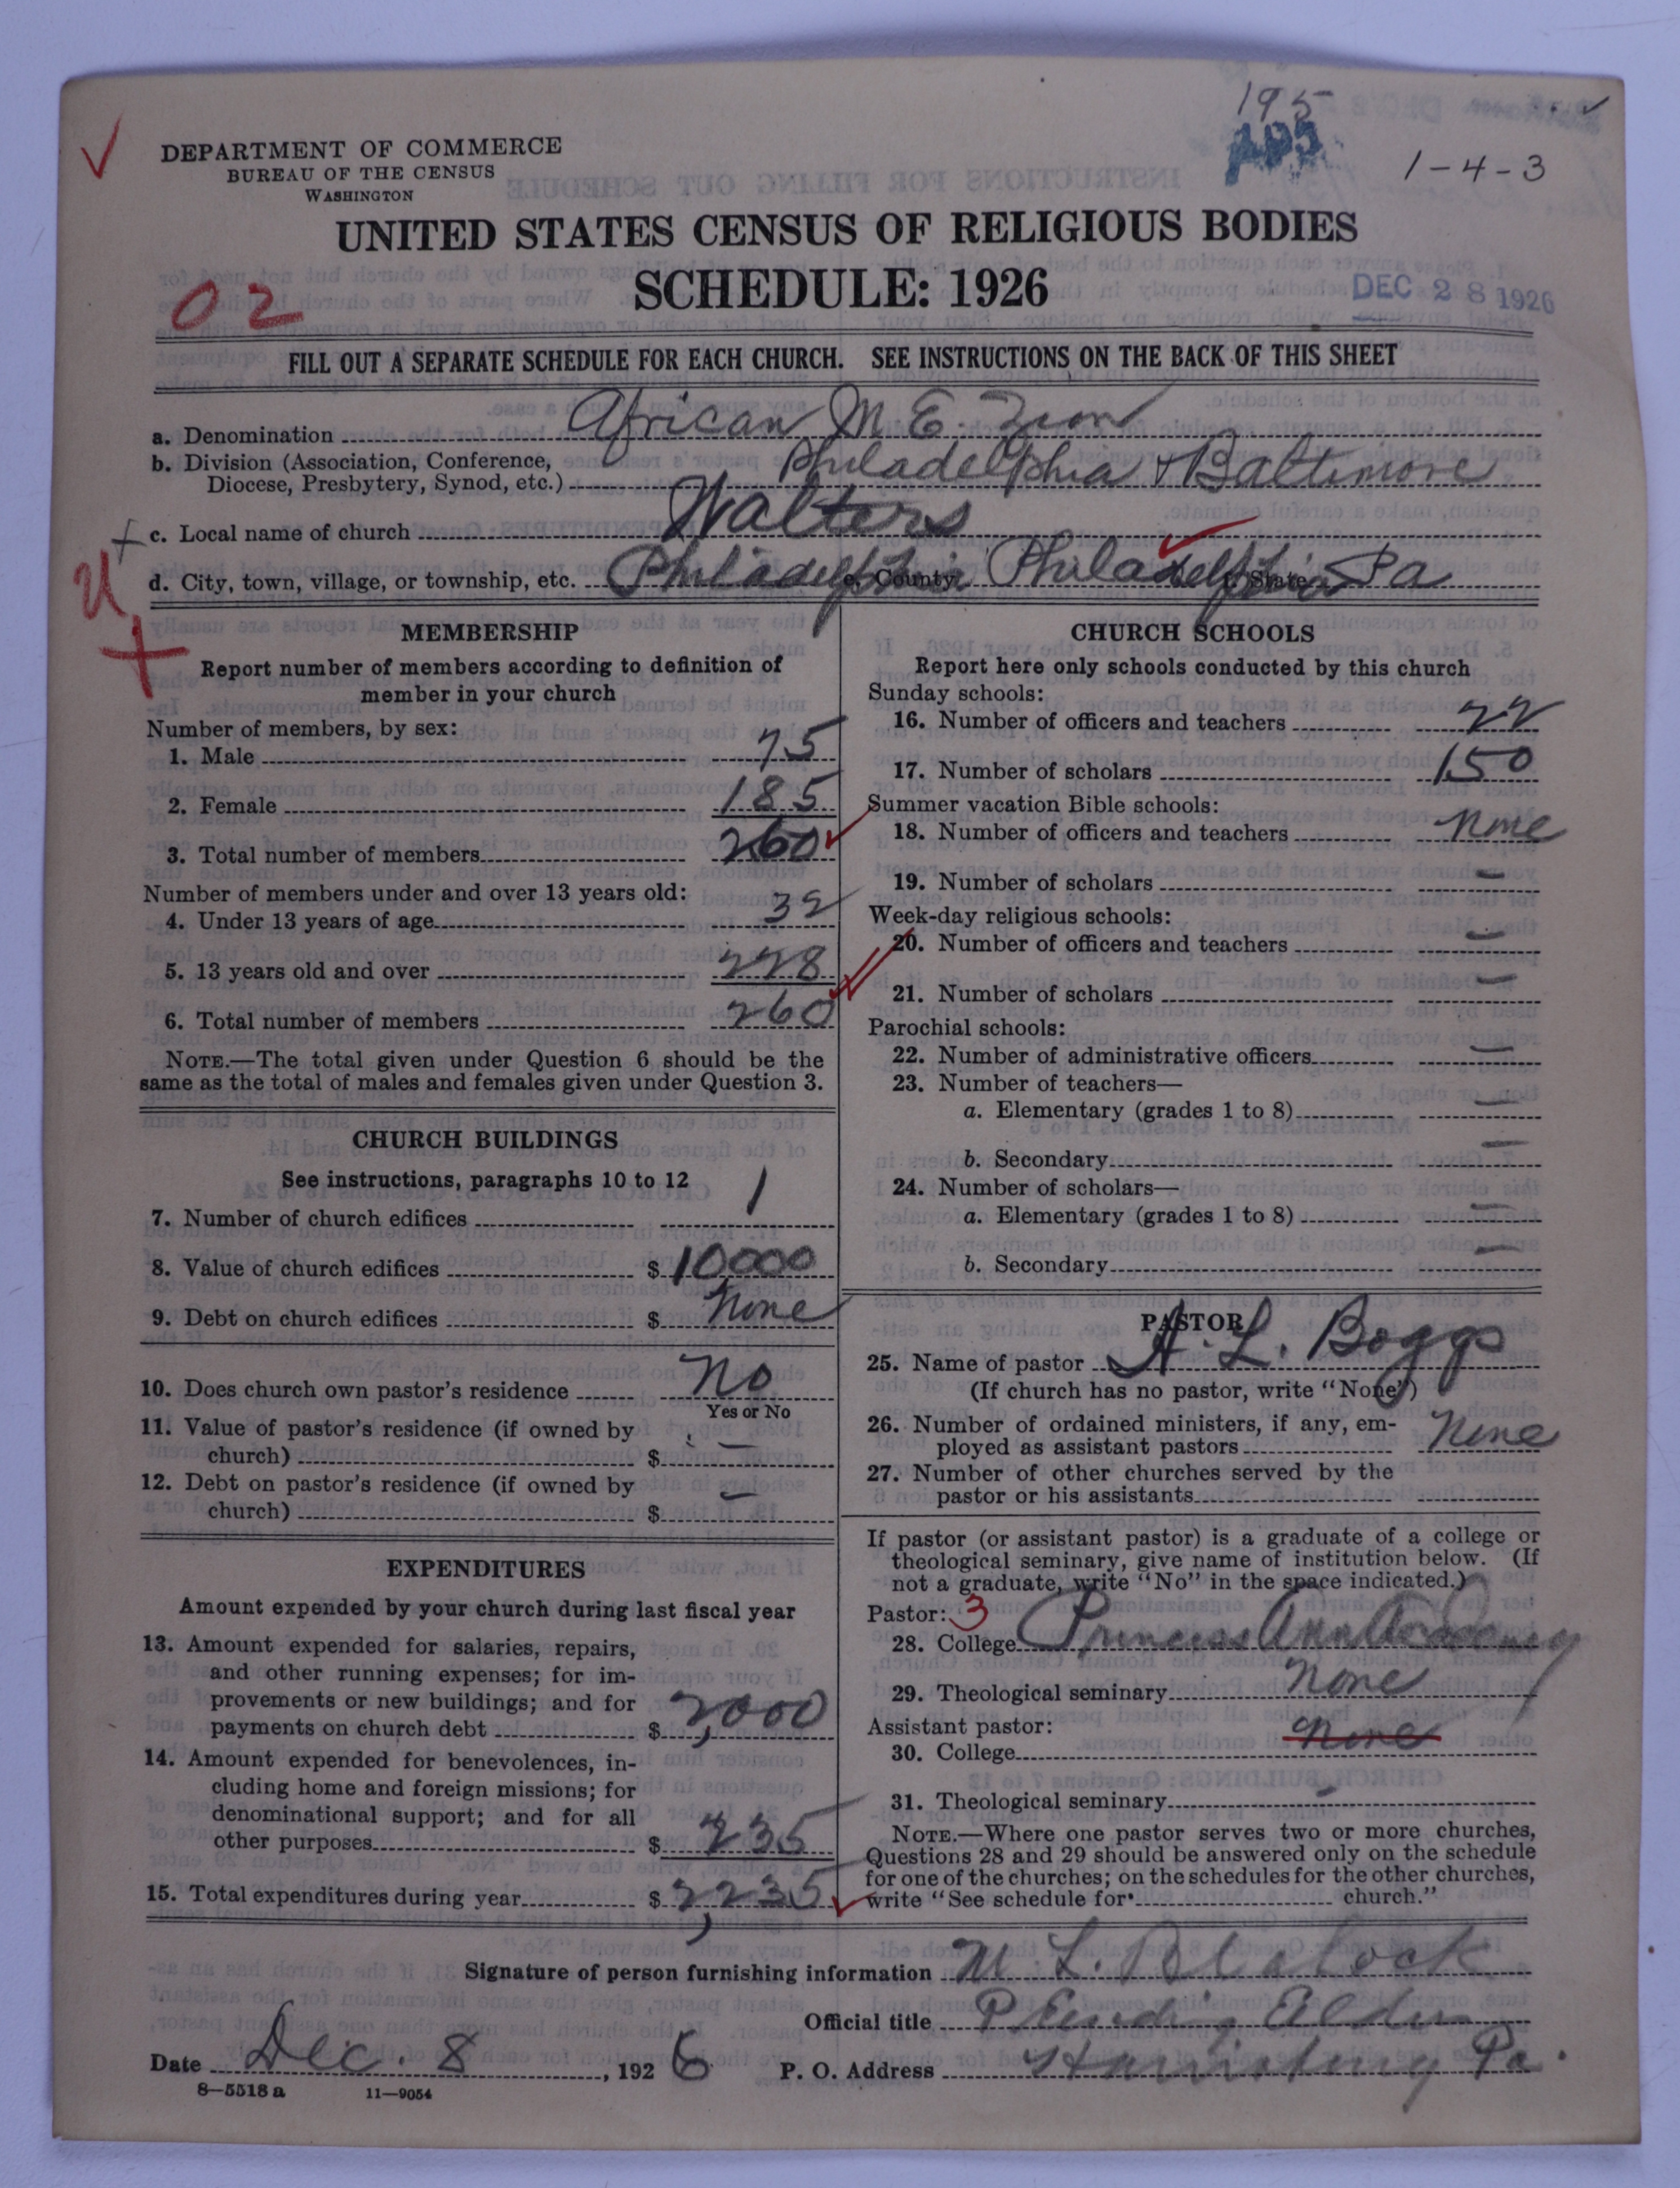 195
1-4-3
DEPARTMENT OF COMMERCE
BUREAU OF THE CENSUS
WASHINGTON
UNITED STATES CENSUS OF RELIGIOUS BODIES
SCHEDULE: 1926
02
DEC 28 1926
FILL OUT A SEPARATE SCHEDULE FOR EACH CHURCH. SEE INSTRUCTIONS ON THE BACK OF THIS SHEET
a. Denomination African M. E. Zion
b. Division (Association, Conference, Diocese, Presbytery, Synod, etc.) Philadelphia & Baltimore
c. Local name of church Walters
d. City, town, village, or township, etc. Philadelphia e. County Philadelphia f. State Pa
MEMBERSHIP
Report number of members according to definition of
member in your church
Number of members, by sex:
1. Male 75
2. Female 185
3. Total number of members 260
Number of members under and over 13 years old:
4. Under 13 years of age 32
5. 13 years old and over 228
6. Total number of members 260
NOTE.—The total given under Question 6 should be the
same as the total of males and females given under Question 3.
CHURCH BUILDINGS
See instructions, paragraphs 10 to 12
7. Number of church edifices 1
8. Value of church edifices $ 10000
9. Debt on church edifices $ None
10. Does church own pastor's residence No
Yes or No
11. Value of pastor's residence (if owned by
church) $ —
12. Debt on pastor's residence (if owned by
church) $ —
EXPENDITURES
Amount expended by your church during last fiscal year
13. Amount expended for salaries, repairs,
and other running expenses; for im-
provements or new buildings; and for
payments on church debt $ 2,000
14. Amount expended for benevolences, in-
cluding home and foreign missions; for
denominational support; and for all
other purposes $ 235
15. Total expenditures during year $ 2,235
CHURCH SCHOOLS
Report here only schools conducted by this church
Sunday schools:
16. Number of officers and teachers 22
17. Number of scholars 150
Summer vacation Bible schools:
18. Number of officers and teachers None
19. Number of scholars —
Week-day religious schools:
20. Number of officers and teachers —
21. Number of scholars —
Parochial schools:
22. Number of administrative officers —
23. Number of teachers—
a. Elementary (grades 1 to 8) —
b. Secondary —
24. Number of scholars—
a. Elementary (grades 1 to 8) —
b. Secondary —
PASTOR
25. Name of pastor A. L. Boggs
(If church has no pastor, write "None")
26. Number of ordained ministers, if any, em-
ployed as assistant pastors None
27. Number of other churches served by the
pastor or his assistants
If pastor (or assistant pastor) is a graduate of a college or
theological seminary, give name of institution below. (If
not a graduate, write "No" in the space indicated.)
Pastor: 3
28. College Princess Ann Academy
29. Theological seminary None
Assistant pastor:
30. College None
31. Theological seminary —
NOTE.—Where one pastor serves two or more churches,
Questions 28 and 29 should be answered only on the schedule
for one of the churches; on the schedules for the other churches,
write "See schedule for church."
Signature of person furnishing information L. Blalock
Official title Elder
Date Dec. 8, 1926 P. O. Address Harrisburg Pa.
8—5518 a 11—9054